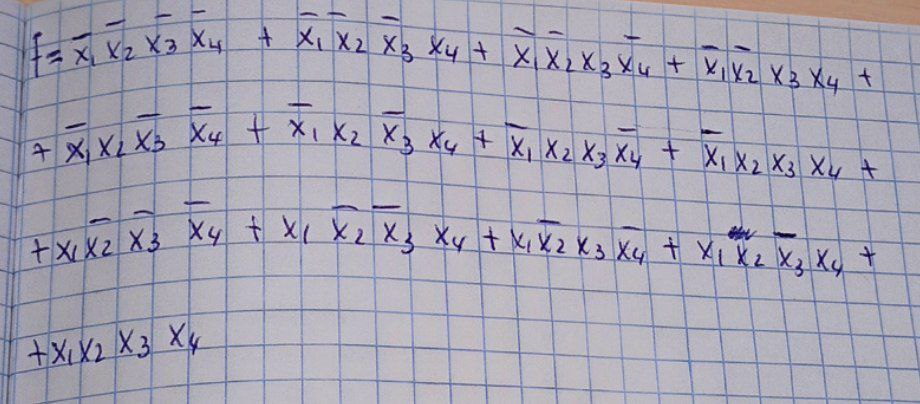 f = x̄₁ x̄₂ x̄₃ x̄₄ + x̄₁ x̄₂ x̄₃ x₄ + x̄₁ x̄₂ x₃ x̄₄ + x̄₁ x̄₂ x₃ x₄ +
+ x̄₁ x₂ x̄₃ x̄₄ + x̄₁ x₂ x̄₃ x₄ + x̄₁ x₂ x₃ x̄₄ + x̄₁ x₂ x₃ x₄ +
+ x₁ x̄₂ x̄₃ x̄₄ + x₁ x̄₂ x̄₃ x₄ + x₁ x̄₂ x₃ x̄₄ + x₁ x₂ x̄₃ x₄ +
+ x₁ x₂ x₃ x₄